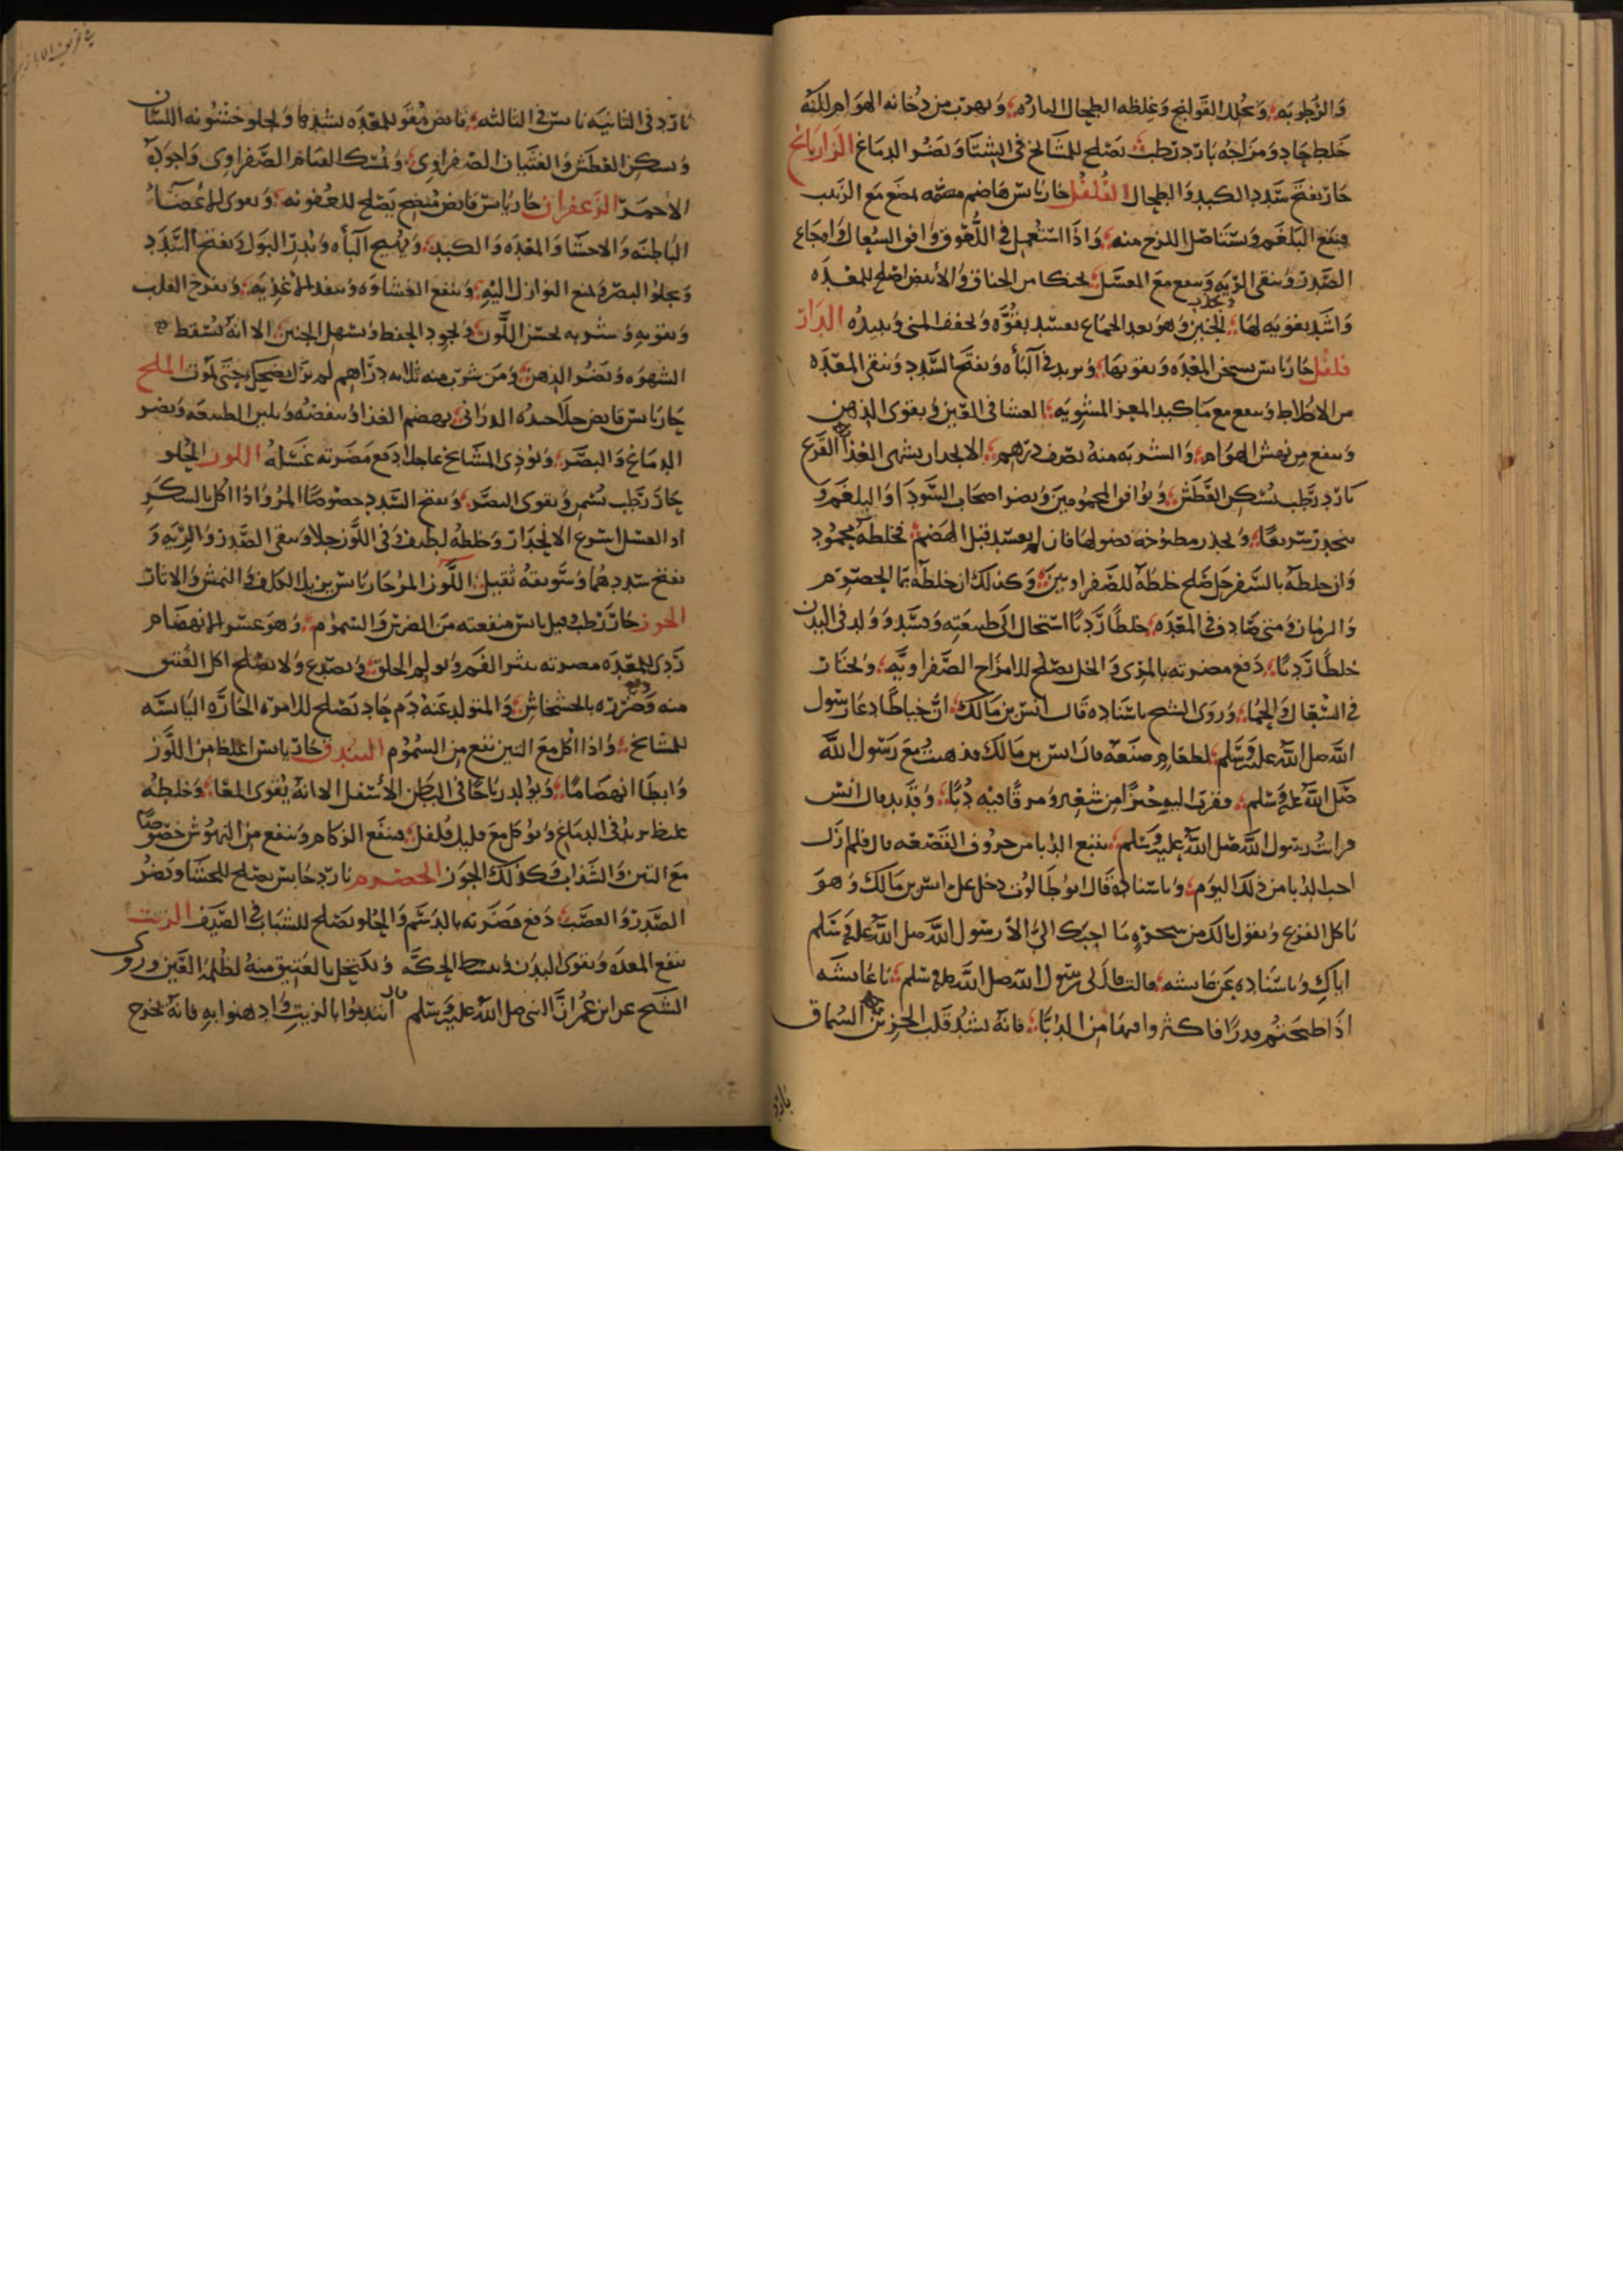 والرطوبه وتحلل القولنج وغلظه الطحال البارده ويهرب من دخانه الهوام لكنه
خلط حاد ومزاجه بارد رطب يصلح للمشايخ في الشتا ويضر الدماغ الرازيانج
حار يفتح سدد الكبد والطحال الفلفل حار يابس هاضم مضغ مع الزبيب
فينفع البلغم ويستاصل اللزج منه واذا استعمل في اللعوق وافق السعال واوجاع
الصدر وينقى الريه وينفع مع العسل تحنكا من الخناق والابيض اصلح للمعده
واشد تقويه لها الجنين وهو بعد الجماع يفسد بقوه ويجفف المنى ويبيده الدار
فلفل حار يابس يسخن المعده ويقويها ويزيد في الباه ويفتح السدد وينقى المعده
من الاخلاط وينفع مع ما كبد المعز المشويه العشا في العين ويقوى الذهن
وينفع من نهش الهوام والشربه منه نصف درهم الانجدان يشهى الغذا القرع
بارد رطب يسكن العطش ويوافق المحمومين ويضر اصحاب السودا والبلغم و
ينحدر سريعا ويحذر مطبوخه فان لم يفسد قبل الهضم فخلطه محمود
وان خلطه بالسفرجل صلح خلطه للصفراويين وكذلك ان خلطه بما الحصرم
والرمان ومتى صادف في المعده خلطا رديا استحال الى طبيعته وفسد وولد في البدن
خلطا رديا دفع مضرته بالمرى والخل يصلح للامزاج الصفراويه ويختار
في السعال والحما وروى الشيخ باسناده قال انس بن مالك ان خياطا دعا رسول
الله صلى الله عليه وسلم لطعام صنعه قال انس بن مالك فذهبت مع رسول الله
صلى الله عليه وسلم فقرب اليه خبزا من شعير ومرقا فيه دبا وقديد قال انس
فرايت رسول الله صلى الله عليه وسلم يتبع الدبا من حروف القصعه قال فلم ازل
احب الدبا من ذلك اليوم وباسناده قال ابو طالوت دخل على انس بن مالك وهو
ياكل القرع ويقول يالك من شجره ما احبك الي الا لرسول الله صلى الله عليه وسلم
اياك وباسناده عن عايشه قالت قال لى رسول الله صلى الله عليه وسلم يا عايشه
اذا طبختم قدرا فاكثروا فيها من الدبا فانه يشد قلب الحزين السماق
بارد
بارد في الثانيه يابس في الثالثه قابض مقو للمعده يشدها ويجلو خشونه اللسان
ويسكن العطش والغثيان الصفراوى ويمسك القيام الصفراوى واجوده
الاحمر الزعفران حار يابس قابض منضج يصلح للعفونه ويقوى الاعضا
الباطنه والاحشا والمعده والكبد ويهيج الباه ويدر البول ويفتح السدد
ويجلو البصر ويمنع النوازل اليه وينفع الغشاوه وينفذ الاغذيه ويفرح القلب
ويقويه وشربه يحسن اللون ويجود الحفظ ويسهل الجنين الا انه يسقط
الشهوه ويضر الذهن ومن شرب منه ثلاثه دراهم لم يزل يضحك حتى يموت الملح
حار يابس قابض جلا احده الدرانى يهضم الغذا ويلين الطبيعه ويضر
الدماغ والبصر ويوذى المشايخ عاجلا دفع مضرته غسله اللوز الحلو
حار رطب يسمن ويقوى البصر ويفتح السدد خصوصا المر واذا اكل بالسكر
او العسل اسرع الانحدار وخلطه لطيف وفي اللوز جلا وينقى الصدر والريه و
يفتح سددهما وسويقه ثقيل اللوز المر حار يابس يزيل الكلف والنمش والاثار
الجوز حار رطب وقيل يابس منفعته من الضرس والسموم وهو عسر الانهضام
ردى للمعده مضرته يبثر الفم ويولم الحلق ويصدع ولا يصلح اكل العتيق
منه ودفع ضرره بالخشخاش والمتولد عنه دم حاد يصلح للامزه الحاره اليابسه
للمشايخ واذا اكل مع التين نفع من السموم البندق حار يابس اغلظ من اللوز
وابطا انهضاما ويولد رياحا في البطن الاسفل الا انه يقوى المعا وخلطه
غليظ يزيد في الدماغ ويوكل مع قليل فلفل فينفع الزكام وينفع من النهوش خصوصا
مع التين والسذاب وكذلك الجوز الحصرم بارد يابس يصلح للاحشا ويضر
الصدر والعصب دفع مضرته بالدسم والحلو يصلح للشباب في الصيف الزيت
ينفع المعده ويقوى البدن وينشط الحركه ويكتحل بالعتيق منه لظلمه العين وروى
الشيخ عن ابن عمر ان النبى صلى الله عليه وسلم قال ائتدموا بالزيت وادهنوا به فانه يخرج